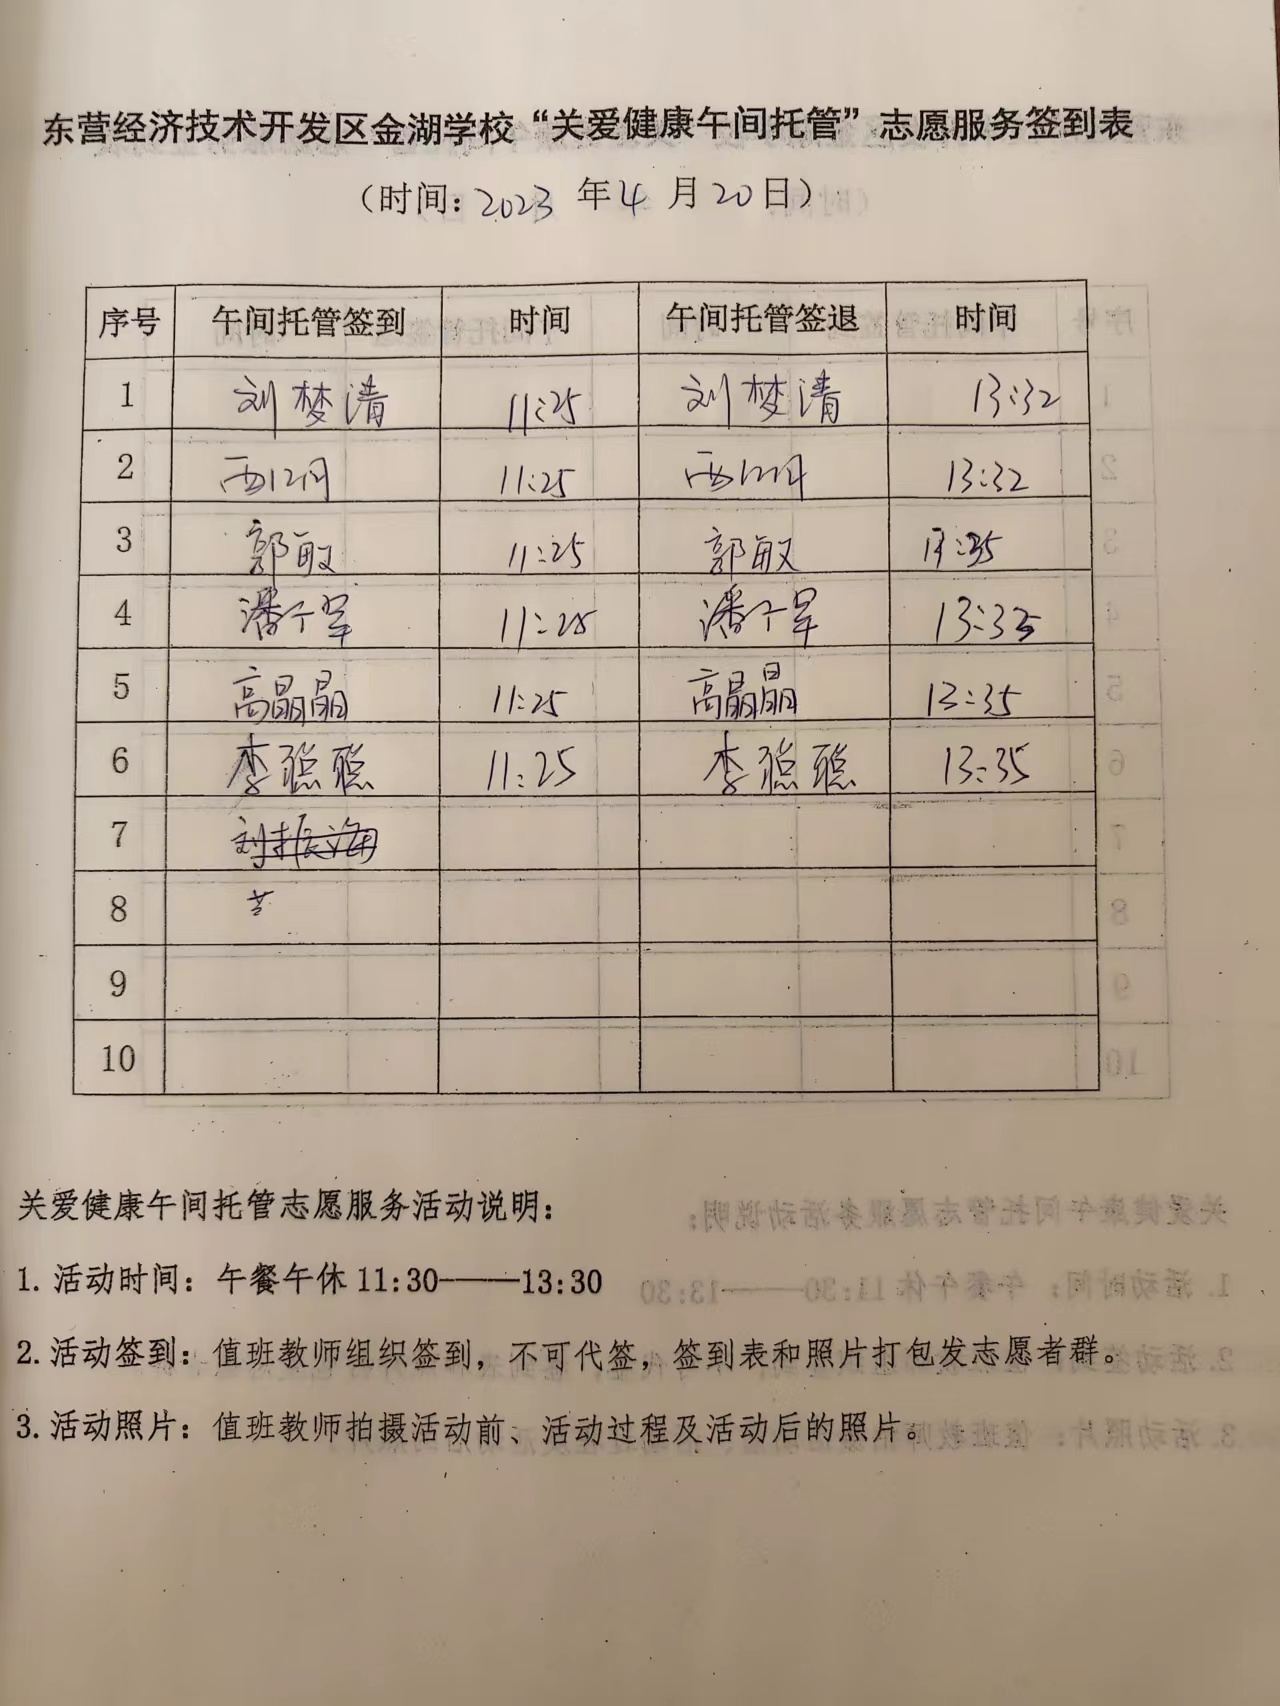 东营经济技术开发区金湖学校“关爱健康午间托管”志愿服务签到表
（时间：2023 年 4 月 20 日）
序号 午间托管签到 时间 午间托管签退 时间
1 刘梦清 11:25 刘梦清 13:32
2 11:25 13:32
3 郭敏 11:25 郭敏 13:35
4 11:25 13:35
5 高晶晶 11:25 高晶晶 13:35
6 李聪聪 11:25 李聪聪 13:35
7
8
9
10
关爱健康午间托管志愿服务活动说明：
1. 活动时间：午餐午休 11:30——13:30
2. 活动签到：值班教师组织签到，不可代签，签到表和照片打包发志愿者群。
3. 活动照片：值班教师拍摄活动前、活动过程及活动后的照片。